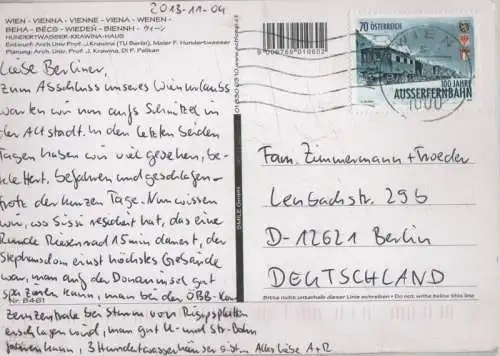 2013-11-04
WIEN - VIENNA - VIENNE - VIENA - WENEN -
BEHA - BÉCS - WIEDEŃ - BIENNH - ウィーン
HUNDERTWASSER-KRAWINA-HAUS
Entwurf: Arch. Univ. Prof. J. Krawina (TU Berlin), Maler F. Hundertwasser
Planung: Arch. Univ. Prof. J. Krawina, DI P. Pelikan
Liebe Berliner,
zum Abschluss unseres Wienurlaubs
warten wir nun aufs Schnitzel in
der Altstadt. In den letzten beiden
Tagen haben wir viel gesehen, be-
klettert, befahren und
trotz der kurzen Tage. Nun wissen
wir, wo Sissi residiert hat, das eine
Runde Riesenrad 15 min dauert, der
Stephansdom einst höchstes Gebäude
war, man auf der Donauinsel gut
spazieren kann, man bei der ÖBB-
Nr. 8461
zentrale bei Sturm von
erschlagen wird, man gut U- und Str-Bahn
fahren kann, 3 Hundertwasserhäuser
Alles Liebe A+R
SMILE GmbH
9 006768 010602
70 ÖSTERREICH
100 JAHRE
AUSSERFERNBAHN
WIEN
1000
Fam. Zimmermann + Troeder
Lenbachstr. 29b
D-12621 Berlin
DEUTSCHLAND
Bitte nicht unterhalb dieser Linie schreiben • Do not write below this line